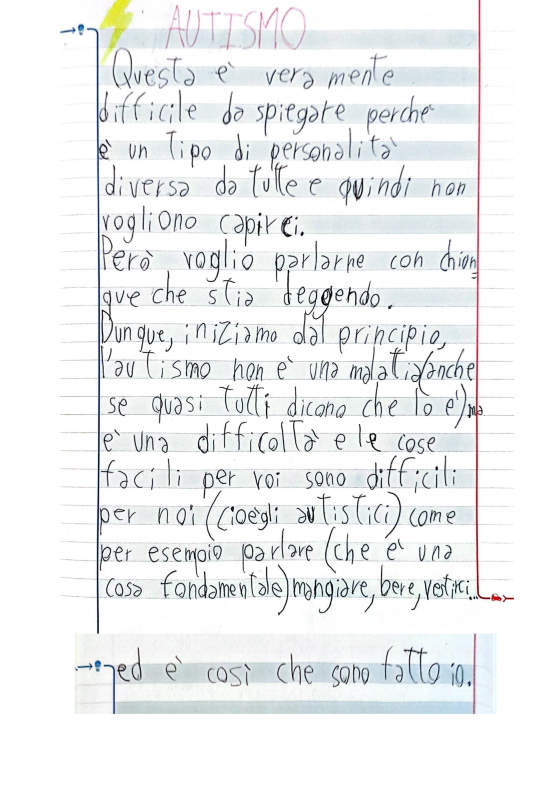 AUTISMO
Questa è vera mente
difficile da spiegare perche
è un tipo di personalità
diversa da tutte e quindi non
vogliono capirci.
Però voglio parlarne con chiun
que che stia leggendo.
Dunque, iniziamo dal principio,
l'autismo non è una malattia (anche
se quasi tutti dicono che lo è) ma
è una difficoltà e le cose
facili per voi sono difficili
per noi (cioè gli autistici) come
per esempio parlare (che è una
cosa fondamentale) mangiare, bere, vestirci...
ed è così che sono fatto io.